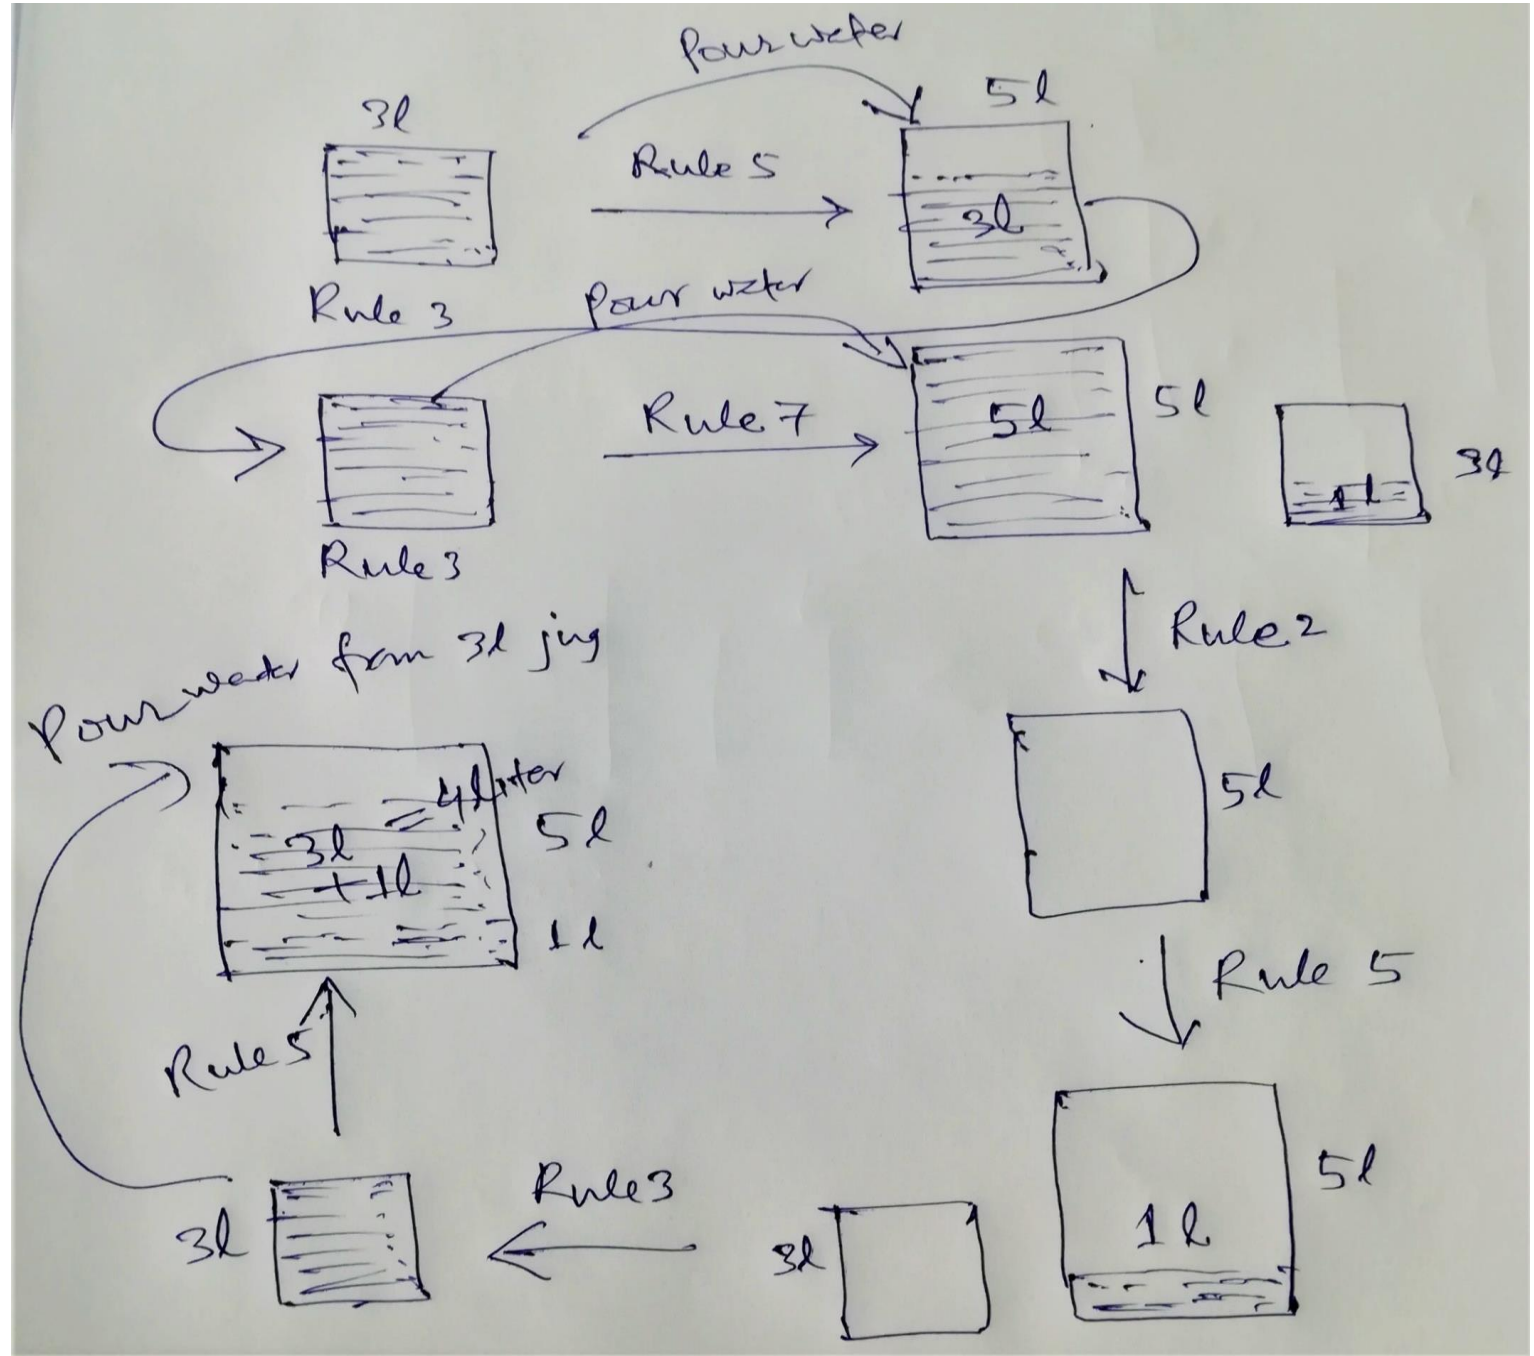 Pour water
3l
5l
Rule 5
3l
Rule 3
Pour water
Rule 7
5l
5l
1l
3l
Rule 3
Rule 2
Pour water from 3l jug
4liter
3l
+1l
5l
1l
5l
Rule 5
Rule 5
5l
1l
Rule 3
3l
3l